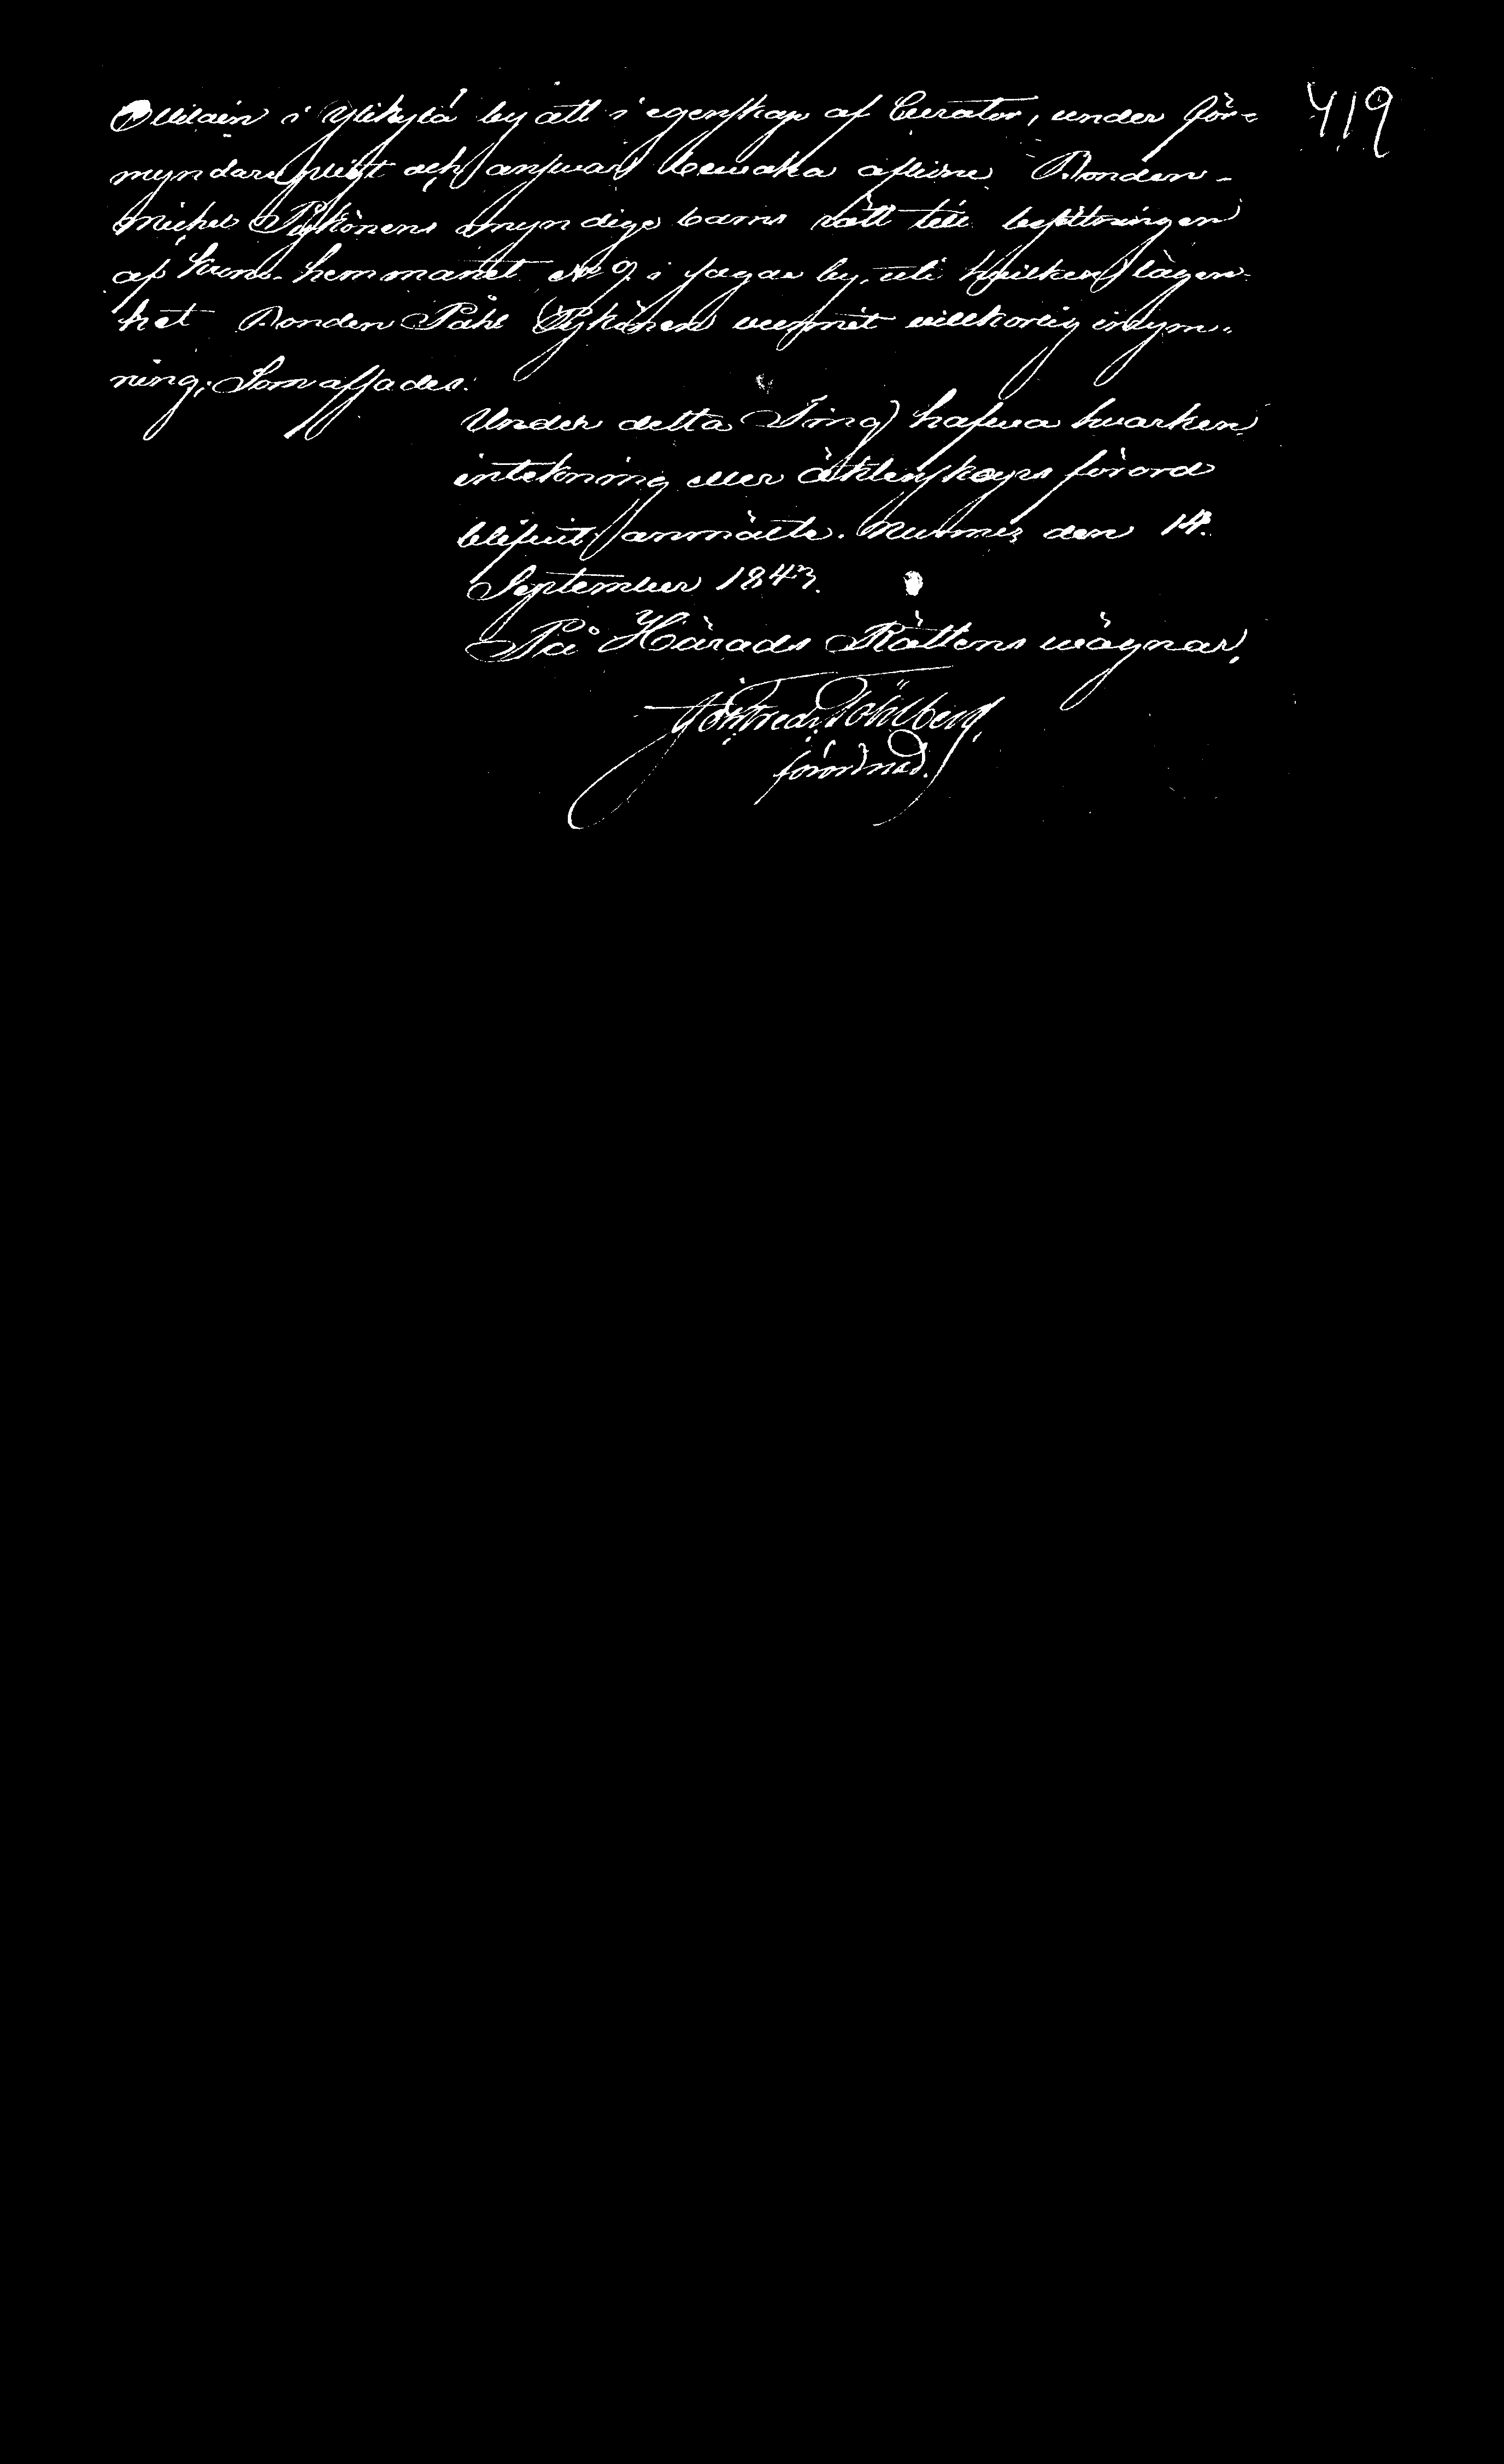 419
Ollilain i Ylikylä by att i egenskap af Curator, under för=
myndare pligt och answar bewaka aflidne Bonden
Michel Pykönens omyndige barns rätt till besittningen
af krono hemmanet No 9 i Jagan by, uti hwilken lägen-
het Bonden Påhl Pykönen wunnit willkorlig inrym-
ning; Som afsades.
Under detta Ting hafwa hwarken
inteckning eller äktenskaps förord
blifwit anmälte. Nurmis den 14.
September 1843.
På Härads Rättens wägnar,
förordnad.